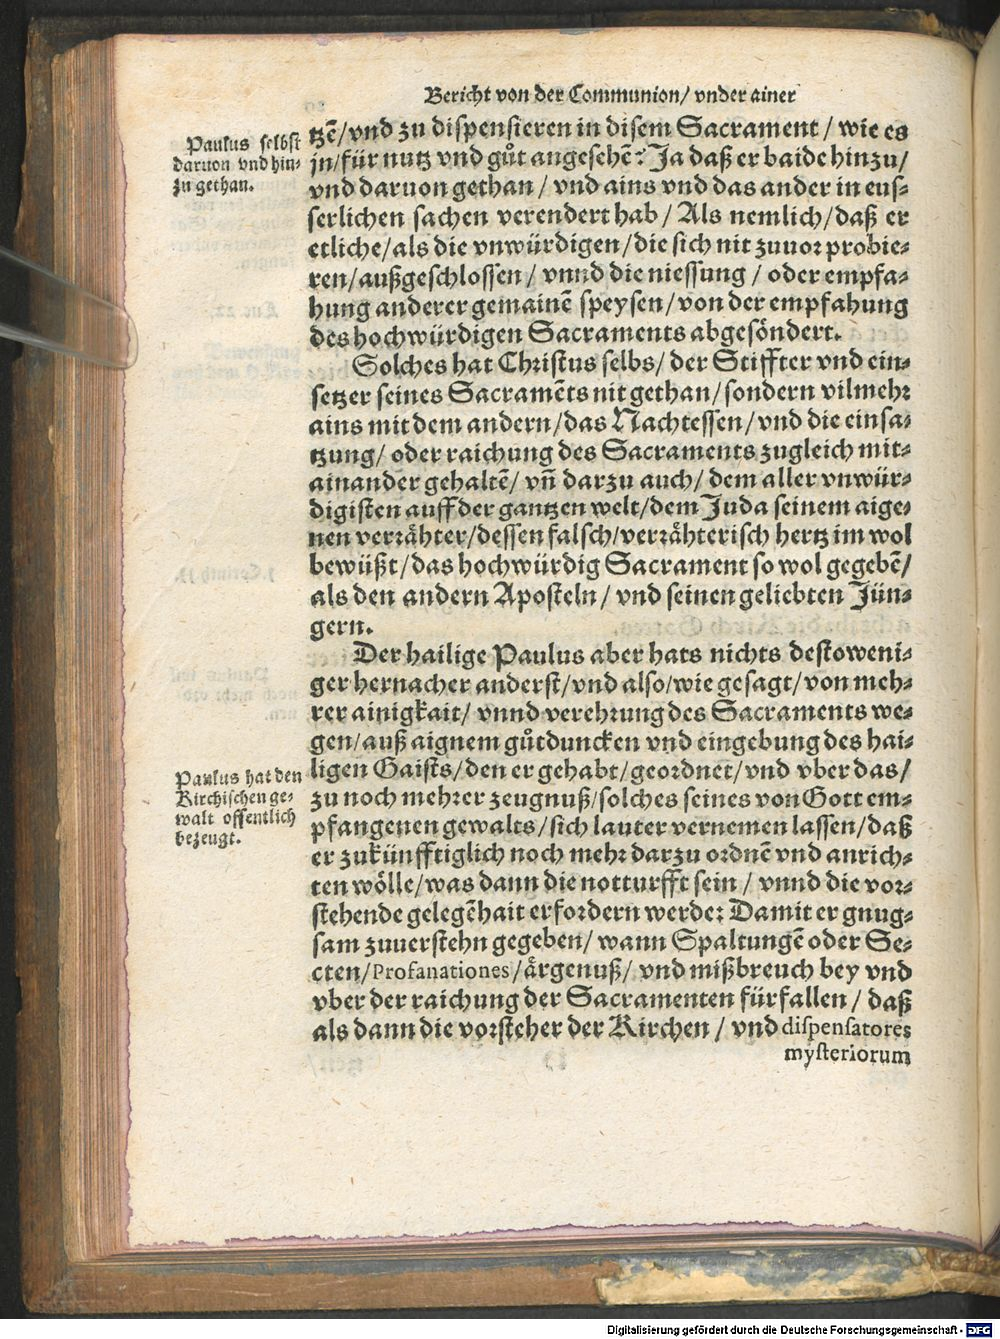 Bericht von der Communion/ vnder ainer
tzē/vnd zu dispensieren in disem Sacrament / wie es
jn/für nutz vnd gůt angesehē? Ja daß er baide hinzu/
vnd daruon gethan / vnd ains vnd das ander in eus⸗
serlichen sachen verendert hab / Als nemlich/daß er
etliche/als die vnwürdigen/die sich nit zuuor probie⸗
ren/außgeschlossen / vnnd die niessung / oder empfa⸗
hung anderer gemainē speysen/von der empfahung
des hochwürdigen Sacraments abgesöndert.
Paulus selbst
daruon vnd hin⸗
zu gethan.
Solches hat Christus selbs/ der Stiffter vnd ein⸗
setzer seines Sacramēts nit gethan/sondern vilmehr
ains mit dem andern/das Nachtessen/vnd die einsa⸗
tzung/ oder raichung des Sacraments zugleich mit⸗
ainander gehaltē/ vn̄ darzu auch/ dem aller vnwür⸗
digisten auff der gantzen welt/dem Juda seinem aige⸗
nen verrähter/dessen falsch/verrähterisch hertz im wol
bewüßt/das hochwürdig Sacrament so wol gegebē/
als den andern Aposteln/ vnd seinen geliebten Jün⸗
gern.
Der hailige Paulus aber hats nichts destoweni⸗
ger hernacher anderst/vnd also/wie gesagt/von meh⸗
rer ainigkait/ vnnd verehrung des Sacraments we⸗
gen/auß aignem gůtduncken vnd eingebung des hai⸗
ligen Gaists/den er gehabt/geordnet/vnd vber das/
zu noch mehrer zeugnuß/solches seines von Gott em⸗
pfangenen gewalts/sich lauter vernemen lassen/daß
er zukünfftiglich noch mehr darzu ordnē vnd anrich⸗
ten wölle/was dann die notturfft sein / vnnd die vor⸗
stehende gelegēhait erfordern werde: Damit er gnug⸗
sam zuuerstehn gegeben/ wann Spaltungē oder Se⸗
cten/Profanationes/ärgenuß/ vnd mißbreuch bey vnd
vber der raichung der Sacramenten fürfallen / daß
als dann die vorsteher der Kirchen / vnd dispensatores
mysteriorum
Paulus hat den
Kirchischen ge⸗
walt offentlich
bezeugt.
Digitalisierung gefördert durch die Deutsche Forschungsgemeinschaft - DFG